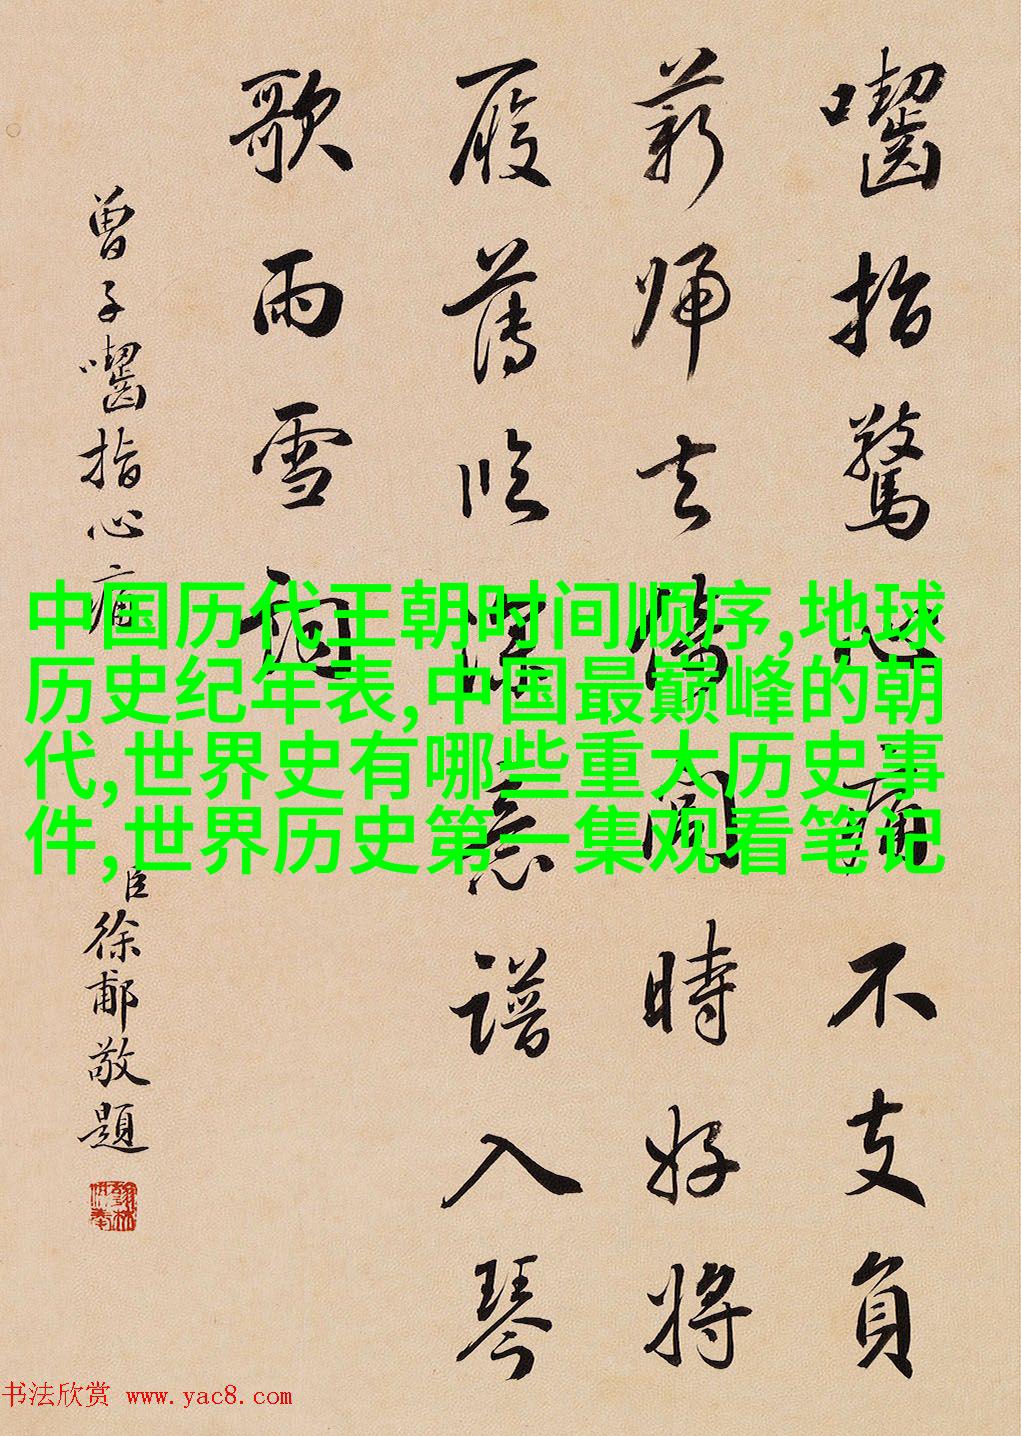 囓指驚心痛不支負
薪歸去時好將
履薄臨深意譜入琴
歌雨雪詞
曾子囓指心痛
臣徐郙敬題
中国历代王朝时间顺序,地球
历史纪年表,中国最巅峰的朝
代,世界史有哪些重大历史事
件,世界历史第一集观看笔记
书法欣赏 www.yac8.com